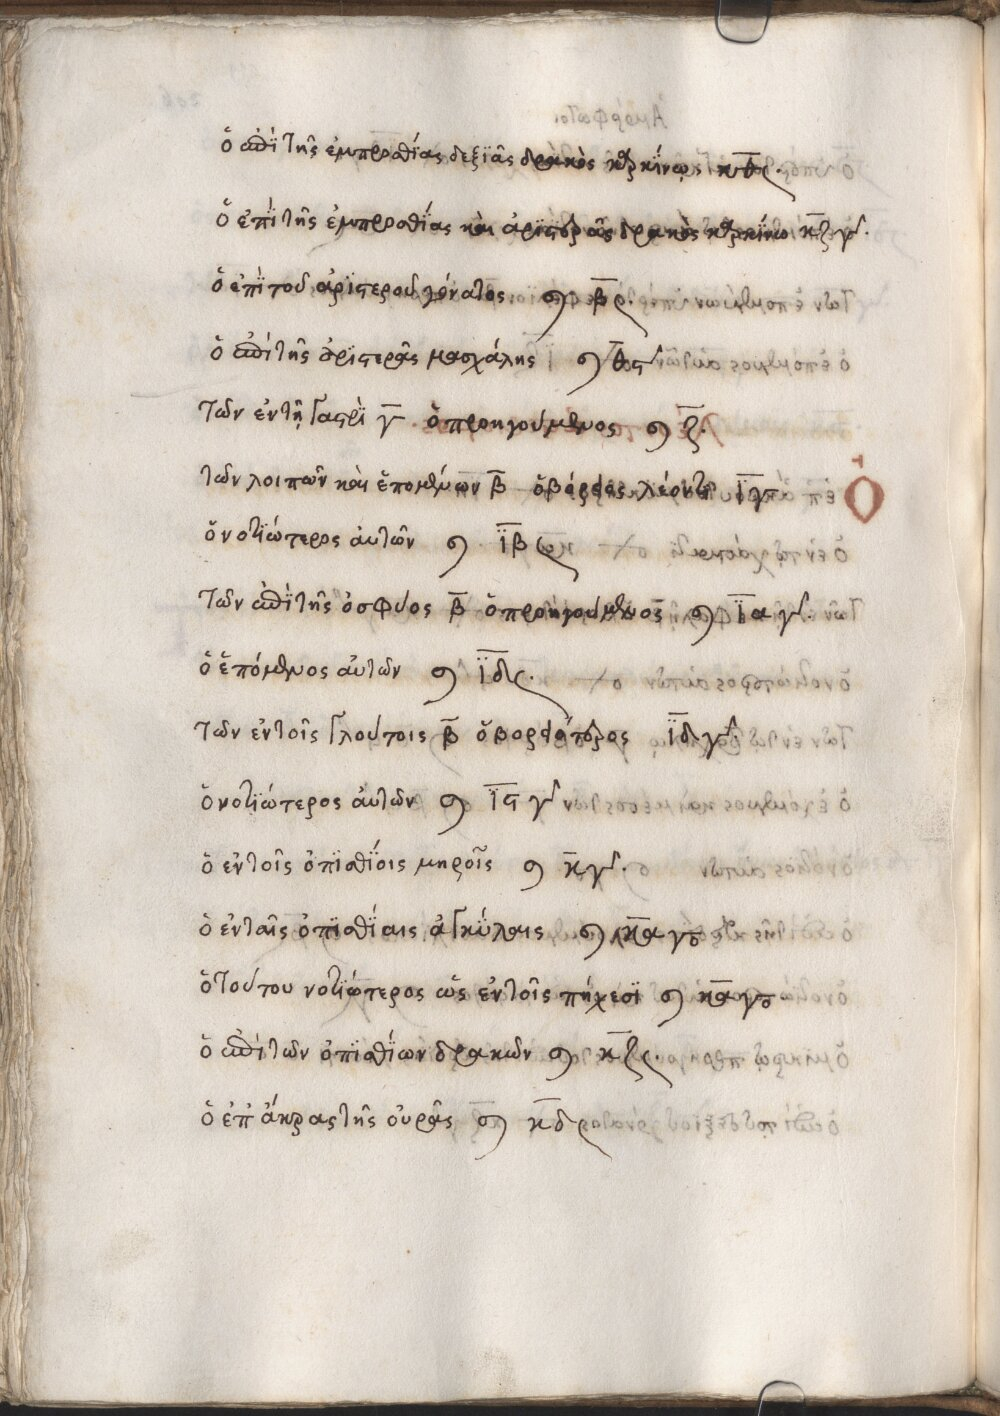 ὁ ἐπὶ τῆς ἐμπροσθίας δεξϊᾶς δρακὸς καρκίνω κδ
ὁ ἐπῒ τῆς ἐμπροσθΐας καὶ ἀρϊστερᾶς δρακὸς καρκίνω κζ γ΄.
ὁ ἐπῒ τοῦ ἀρϊστεροῦ γόνατος β̅
ὁ ἐπῒ τῆς ἀρϊστερᾶς μασχάλης θ̅
τῶν ἐν τῇ γαστρῒ γ̅ ὁ προηγούμενος ζ̅.
τῶν λοιπῶν καὶ ἑπομένων β̅ ὁ βόρειος λέοντι ι̅γ̅
ὁ νοτϊώτερος ἀυτῶν ϊ̅β̅
τῶν ἐπῒ τῆς ὀσφύος β̅ ὁ προηγούμενος ϊ̅α̅ γ΄.
ὁ ἑπόμενος ἀυτῶν ϊ̅δ̅
τῶν ἐν τοῖς γλουτοῖς β̅ ὁ βορειότερος ϊ̅δ̅ γ΄.
ὁ νοτϊώτερος ἀυτῶν ι̅ϛ̅ γ΄
ὁ ἐν τοῖς ὀπϊσθΐοις μηροῖς κ̅ γ΄.
ὁ ἐν ταῖς ὀπϊσθΐαις ἀγκΰλαις κ̅α̅
ὁ τούτου νοτϊώτερος ὡς ἐν τοῖς πήχεσϊ κ̅α̅
ὁ ἐπὶ τῶν ὀπϊσθΐων δρακῶν κ̅ζ̅
ὁ ἐπ' ἄκρας τῆς οὐρᾶς κ̅δ̅